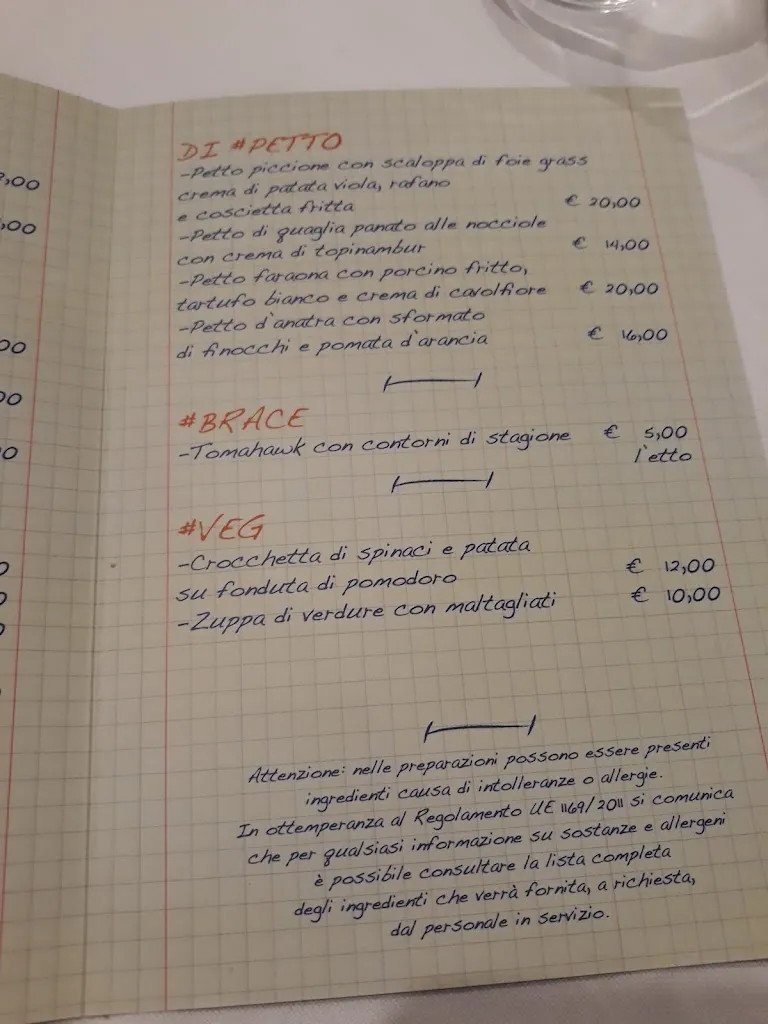 DI #PETTO
-Petto piccione con scaloppa di foie grass
crema di patata viola, rafano
e coscietta fritta € 20,00
-Petto di quaglia panato alle nocciole
con crema di topinambur € 14,00
-Petto faraona con porcino fritto,
tartufo bianco e crema di cavolfiore € 20,00
-Petto d'anatra con sformato
di finocchi e pomata d'arancia € 16,00
#BRACE
-Tomahawk con contorni di stagione € 5,00
l'etto
#VEG
-Crocchetta di spinaci e patata
su fonduta di pomodoro € 12,00
-Zuppa di verdure con maltagliati € 10,00
Attenzione: nelle preparazioni possono essere presenti
ingredienti causa di intolleranze o allergie.
In ottemperanza al Regolamento UE 1169/2011 si comunica
che per qualsiasi informazione su sostanze e allergeni
è possibile consultare la lista completa
degli ingredienti che verrà fornita, a richiesta,
dal personale in servizio.